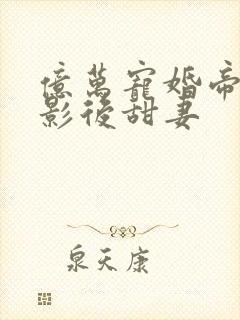 億萬寵婚帝
影後甜妻
泉天康